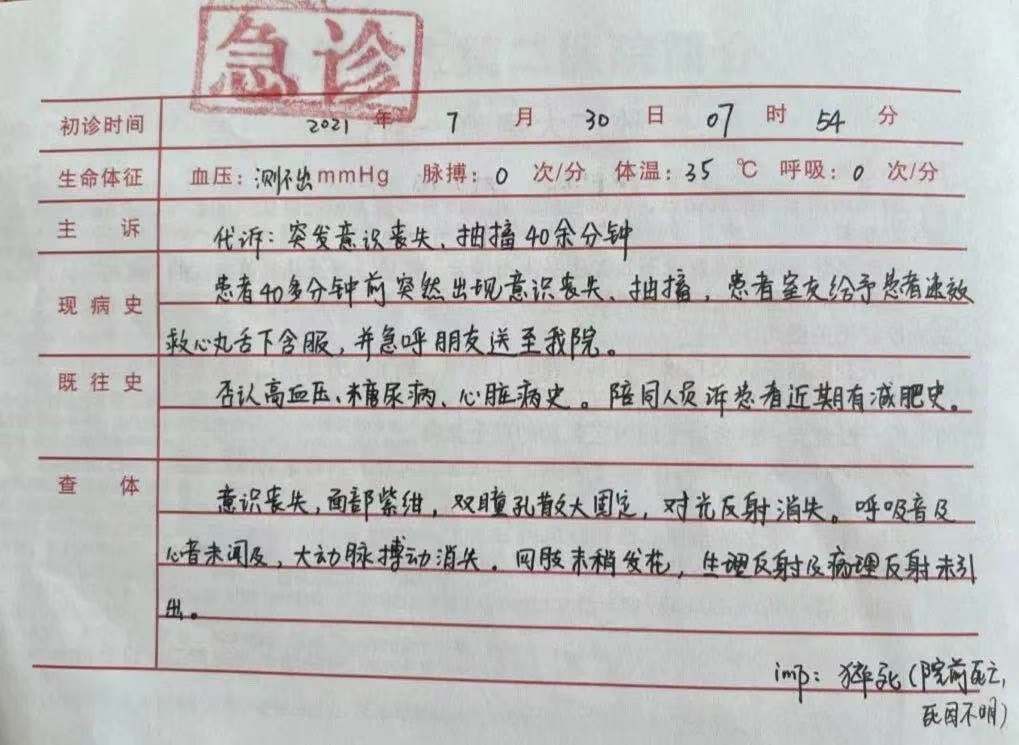 急诊
初诊时间 2021 年 7 月 30 日 07 时 54 分
生命体征 血压：测不出 mmHg 脉搏：0 次/分 体温：35 ℃ 呼吸：0 次/分
主诉 代诉：突发意识丧失、抽搐40余分钟
现病史 患者40多分钟前突然出现意识丧失、抽搐，患者室友给予患者速效
救心丸舌下含服，并急呼朋友送至我院。
既往史 否认高血压、糖尿病、心脏病史。陪同人员诉患者近期有减肥史。
查体 意识丧失，面部紫绀，双瞳孔散大固定，对光反射消失。呼吸音及
心音未闻及，大动脉搏动消失。四肢末梢发花，生理反射及病理反射未引
出。
imp：猝死（院前死亡，
死因不明）